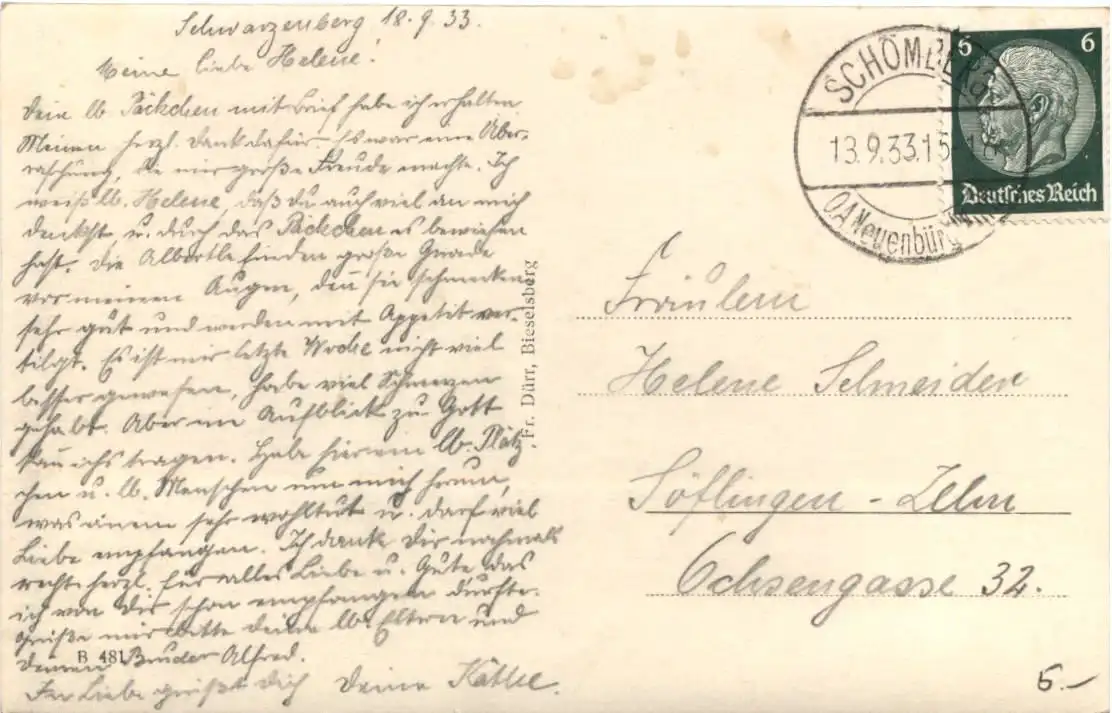 Schwarzenberg 18.9.33.
Meine liebe Helene!
Dein lb. Päckchen mit Brief habe ich erhalten
Meinen herzl. Dank dafür. Es war eine Über-
raschung, die mir große Freude machte. Ich
weiß lb. Helene, daß Du auch viel an mich
denkst, u. durch das Päckchen es bewiesen
hast. Die Albertle finden große Gnade
vor meinen Augen, den̄ sie schmecken
sehr gut und werden mit Appetit ver-
tilgt. Es ist mir letzte Woche nicht viel
besser gewesen, habe viel Schmerzen
gehabt. Aber im Aufblick zu Gott
kan̄ ichs tragen. Habe hier ein lb. Plätz-
chen u. lb. Menschen um mich herum,
was einem sehr wohltut u. darf viel
Liebe empfangen. Ich danke Dir nochmals
recht herzl. für alles Liebe u. Gute das
ich von Dir schon empfangen durfte.
Grüße mir bitte deine lb. Eltern und
deinen Bruder Alfred.
In Liebe grüßt Dich Deine Käthe.
B 481
Fr. Dürr, Bieselsberg
SCHÖMBERG
13.9.33.15-16
OA Neuenbürg
6 6
Deutsches Reich
Fräulein
Helene Schneider
Söflingen - Ulm
Ochsengasse 32.
5.-